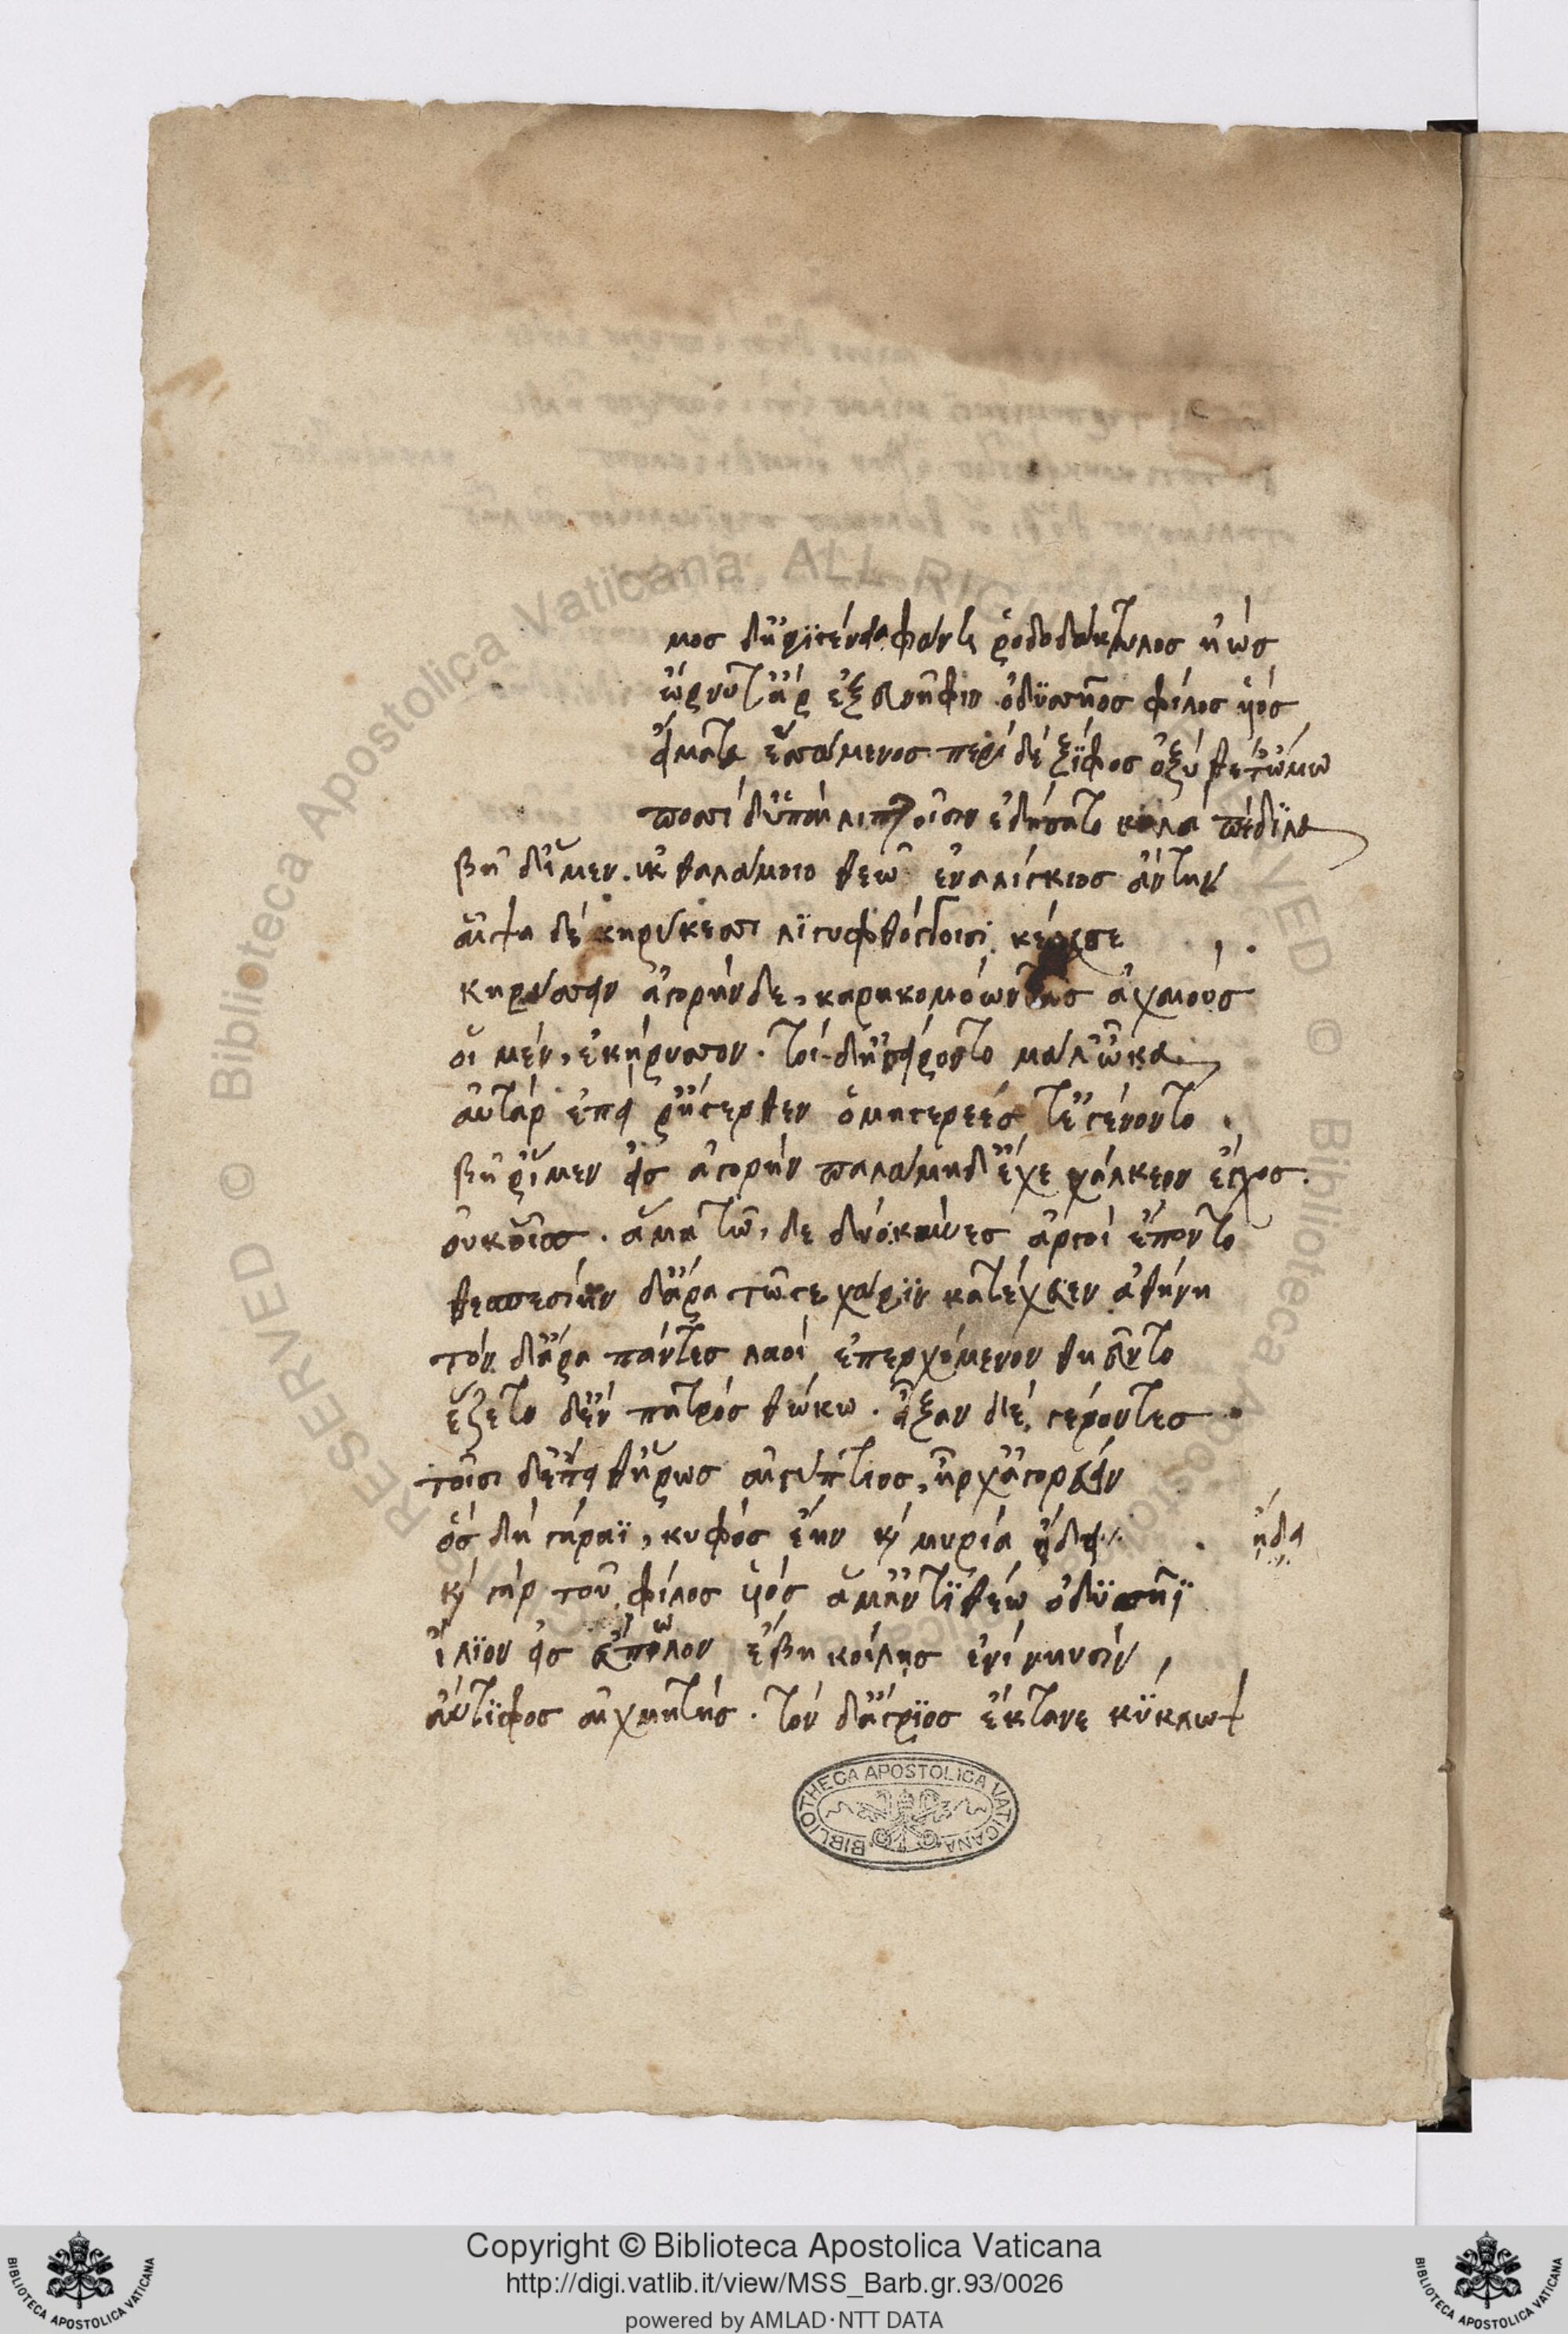 μος δ' ἠριγένεια φάνη ῥοδοδάκτυλος ἠώς
ὤρνυτ' ἄρ ἐξ εὐνῆφιν ὀδϋσσῆος φίλος ϋἱός
εἵματα ἑσσάμενος· περὶ δέ ξίφος ὀξύ θέτ' ὤμω
ποσσί δ' ὑπαὶ λιπαροῖσιν ἐδήσατο καλά πέδϊλα
βῆ δ' ἴμεν· ἐκ θαλάμοιο θεῶ ἐναλίγκιος ἄντην
αἶψα δέ κηρύκεσσι λϊγυφθόγγοισι κέλευσε
κηρύσσειν ἀγορήνδε, καρηκομόωντας ἀχαιούς
οἱ μέν, ἐκήρυσσον· τοί δ' ἠγείροντο μάλ' ὦκα
αὐτάρ ἐπεί ῥ' ἤγερθεν ὁμηγερεές τ' ἐγένοντο·
βῆ ῥ' ἴμεν εἰς ἀγορήν παλάμη δ' ἔχε χάλκεον ἔγχος.
οὐκ οἶος· ἅμα τῶ, δε δύο κύνες ἀργοί ἕποντο
θεσπεσίην δ' ἄρα τῶγε χάρϊν κατέχευεν ἀθήνη
τόν δ' ἄρα πάντες λαοί ἐπερχόμενον θηεῦντο
ἕζετο δ' ἐν πατρός θώκω· εἶξαν δέ, γέροντες·
τοῖσι δ' ἔπειθ' ἥρως αἰγύπτιος, ἦρχ' ἀγορεύειν
ὅς δή γήραϊ, κυφός ἔην καί μυρία ἤδει·
ἤδη
καί γάρ τοῦ φίλος ϋἱός ἅμ' ἀντϊθέω ὀδϋσσῆϊ
ἴλϊον εἰς εὔπωλον ἔβη κοίλης ἐνί νηυσίν,
ἄντϊφος αἰχμητής· τόν δ' ἄγρϊος ἔκτανε κϋκλωψ
BIBLIOTHECA APOSTOLICA VATICANA
© Biblioteca Apostolica Vaticana ALL RIGHTS RESERVED
Copyright © Biblioteca Apostolica Vaticana
http://digi.vatlib.it/view/MSS_Barb.gr.93/0026
powered by AMLAD·NTT DATA
BIBLIOTECA APOSTOLICA VATICANA
BIBLIOTECA APOSTOLICA VATICANA